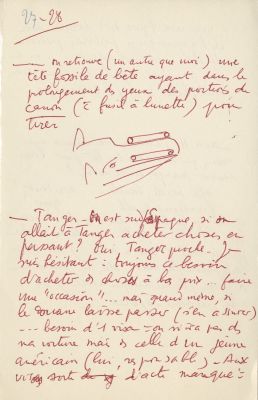 27-28
— on retrouve (un autre que moi) une
tête fossile de bête ayant dans le
prolongement des yeux des portions de
canon (à fusil à lunette) pour
tirer
— Tanger - On est en Espagne, si on
allait à Tanger acheter choses en
passant? Oui, Tanger proche. Je
suis hésitant : toujours ce besoin
d'acheter des choses à bas prix... faire
une "occasion"... mais quand même, si
la douane laisse passer (s'en assurer)
... besoin d'1 visa = on n'ira pas ds
ma voiture mais ds celle d'un jeune
américain (lui, responsable) - Aux
vitres sort d'acte manqué =